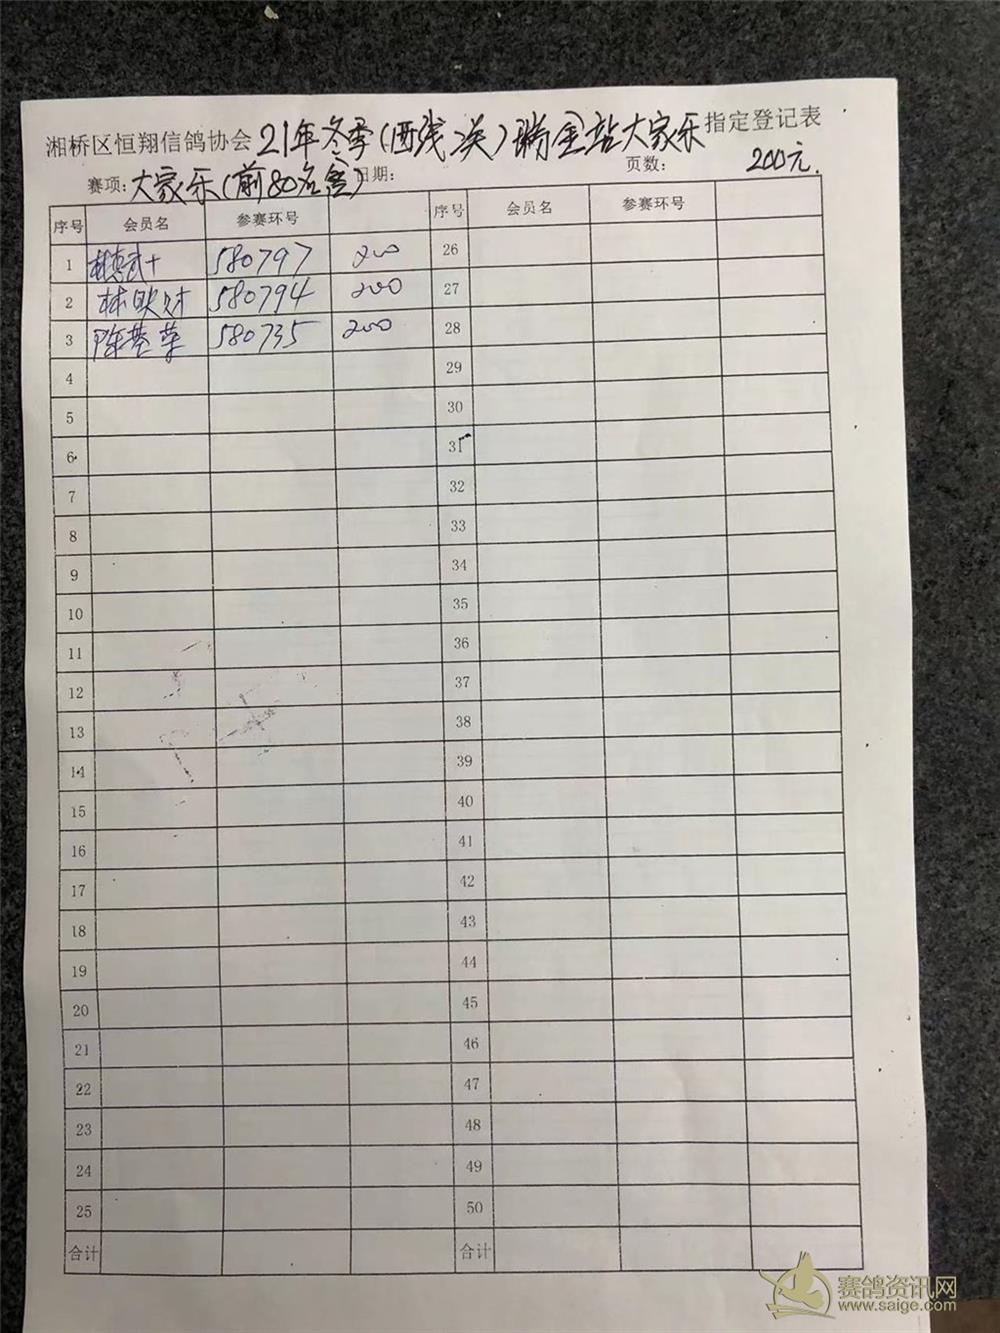 湘桥区恒翔信鸽协会 21年冬季(西线决)瑞金站大家乐 指定登记表
赛项: 大家乐(前80名奖) 日期: 页数: 200元.
序号 会员名 参赛环号 序号 会员名 参赛环号
1 580797 200 26
2 林映财 580794 200 27
3 陈基荣 580735 200 28
4 29
5 30
6 31
7 32
8 33
9 34
10 35
11 36
12 37
13 38
14 39
15 40
16 41
17 42
18 43
19 44
20 45
21 46
22 47
23 48
24 49
25 50
合计 合计
赛鸽资讯网
www.saige.com